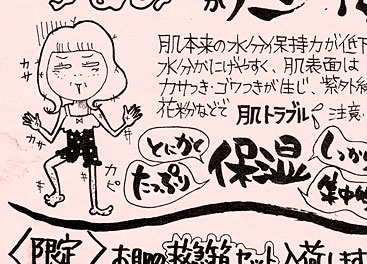 が
肌本来の水分保持力が低下
水分がにげやすく、肌表面は
カサつき・ゴワつきが生じ、紫外線
花粉などで 肌トラブル 注意
カサ
カサ
カサ
カピ
とにかく
たっぷり
保湿
しっかり
集中的
〈限定〉お肌の救急箱セット入荷します